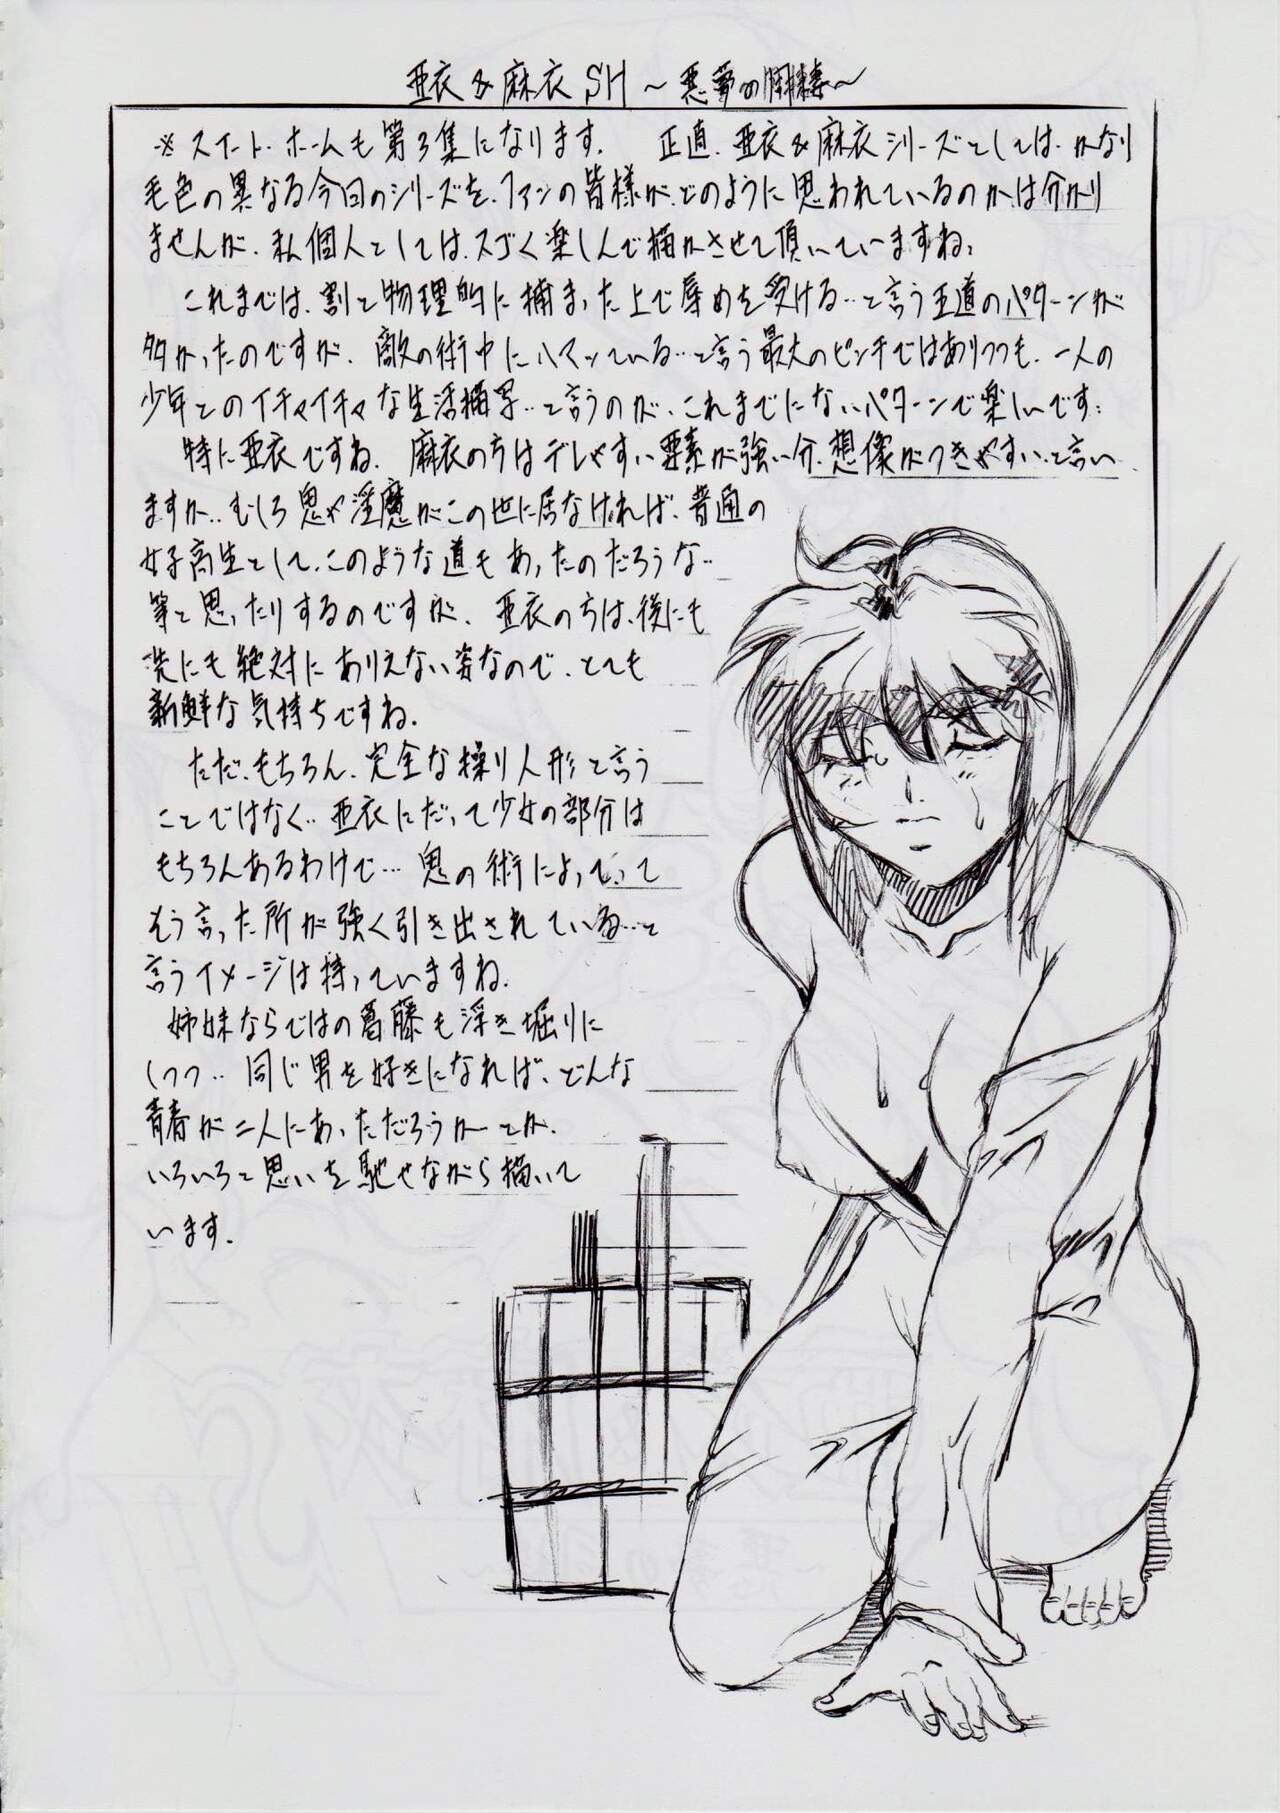 亜衣&麻衣SH～悪夢の開棲～
※スイート・ホームも第3集になります。 正直、亜衣&麻衣シリーズとしては、かなり
毛色の異なる今回のシリーズを、ファンの皆様が、どのように思われているのかは分かり
ませんが、私個人としては、スゴく楽しんで描かさせて頂いていますね。
これまでは、割と物理的に捕まった上で辱めを受ける…と言う王道のパターンが
多かったのですが、敵の術中にハマッている…と言う最大のピンチではありつつも、一人の
少年とのイチャイチャな生活描写…と言うのが、これまでにないパターンで楽しいです。
特に亜衣ですね。麻衣のちはデレやすい要素が強い分、想像がつきやすい、と言い
ますか、むしろ鬼や淫魔がこの世に居なければ、普通の
女子高生として、このような道もあったのだろうな…
等と思ったりするのですが、亜衣のちは、後にも
先にも絶対にありえない姿なので、とても
新鮮な気持ちですね。
ただ、もちろん、完全な操り人形と言う
ことではなく…亜衣にだって少女の部分は
もちろんあるわけで…鬼の術によって
そう言った所が強く引き出されている…と
言うイメージは持っていますね。
姉妹ならではの葛藤も浮き堀りに
しつつ…同じ男を好きになれば、どんな
青春が二人にあっただろうかーとか、
いろいろと思いを馳せながら描いて
います。